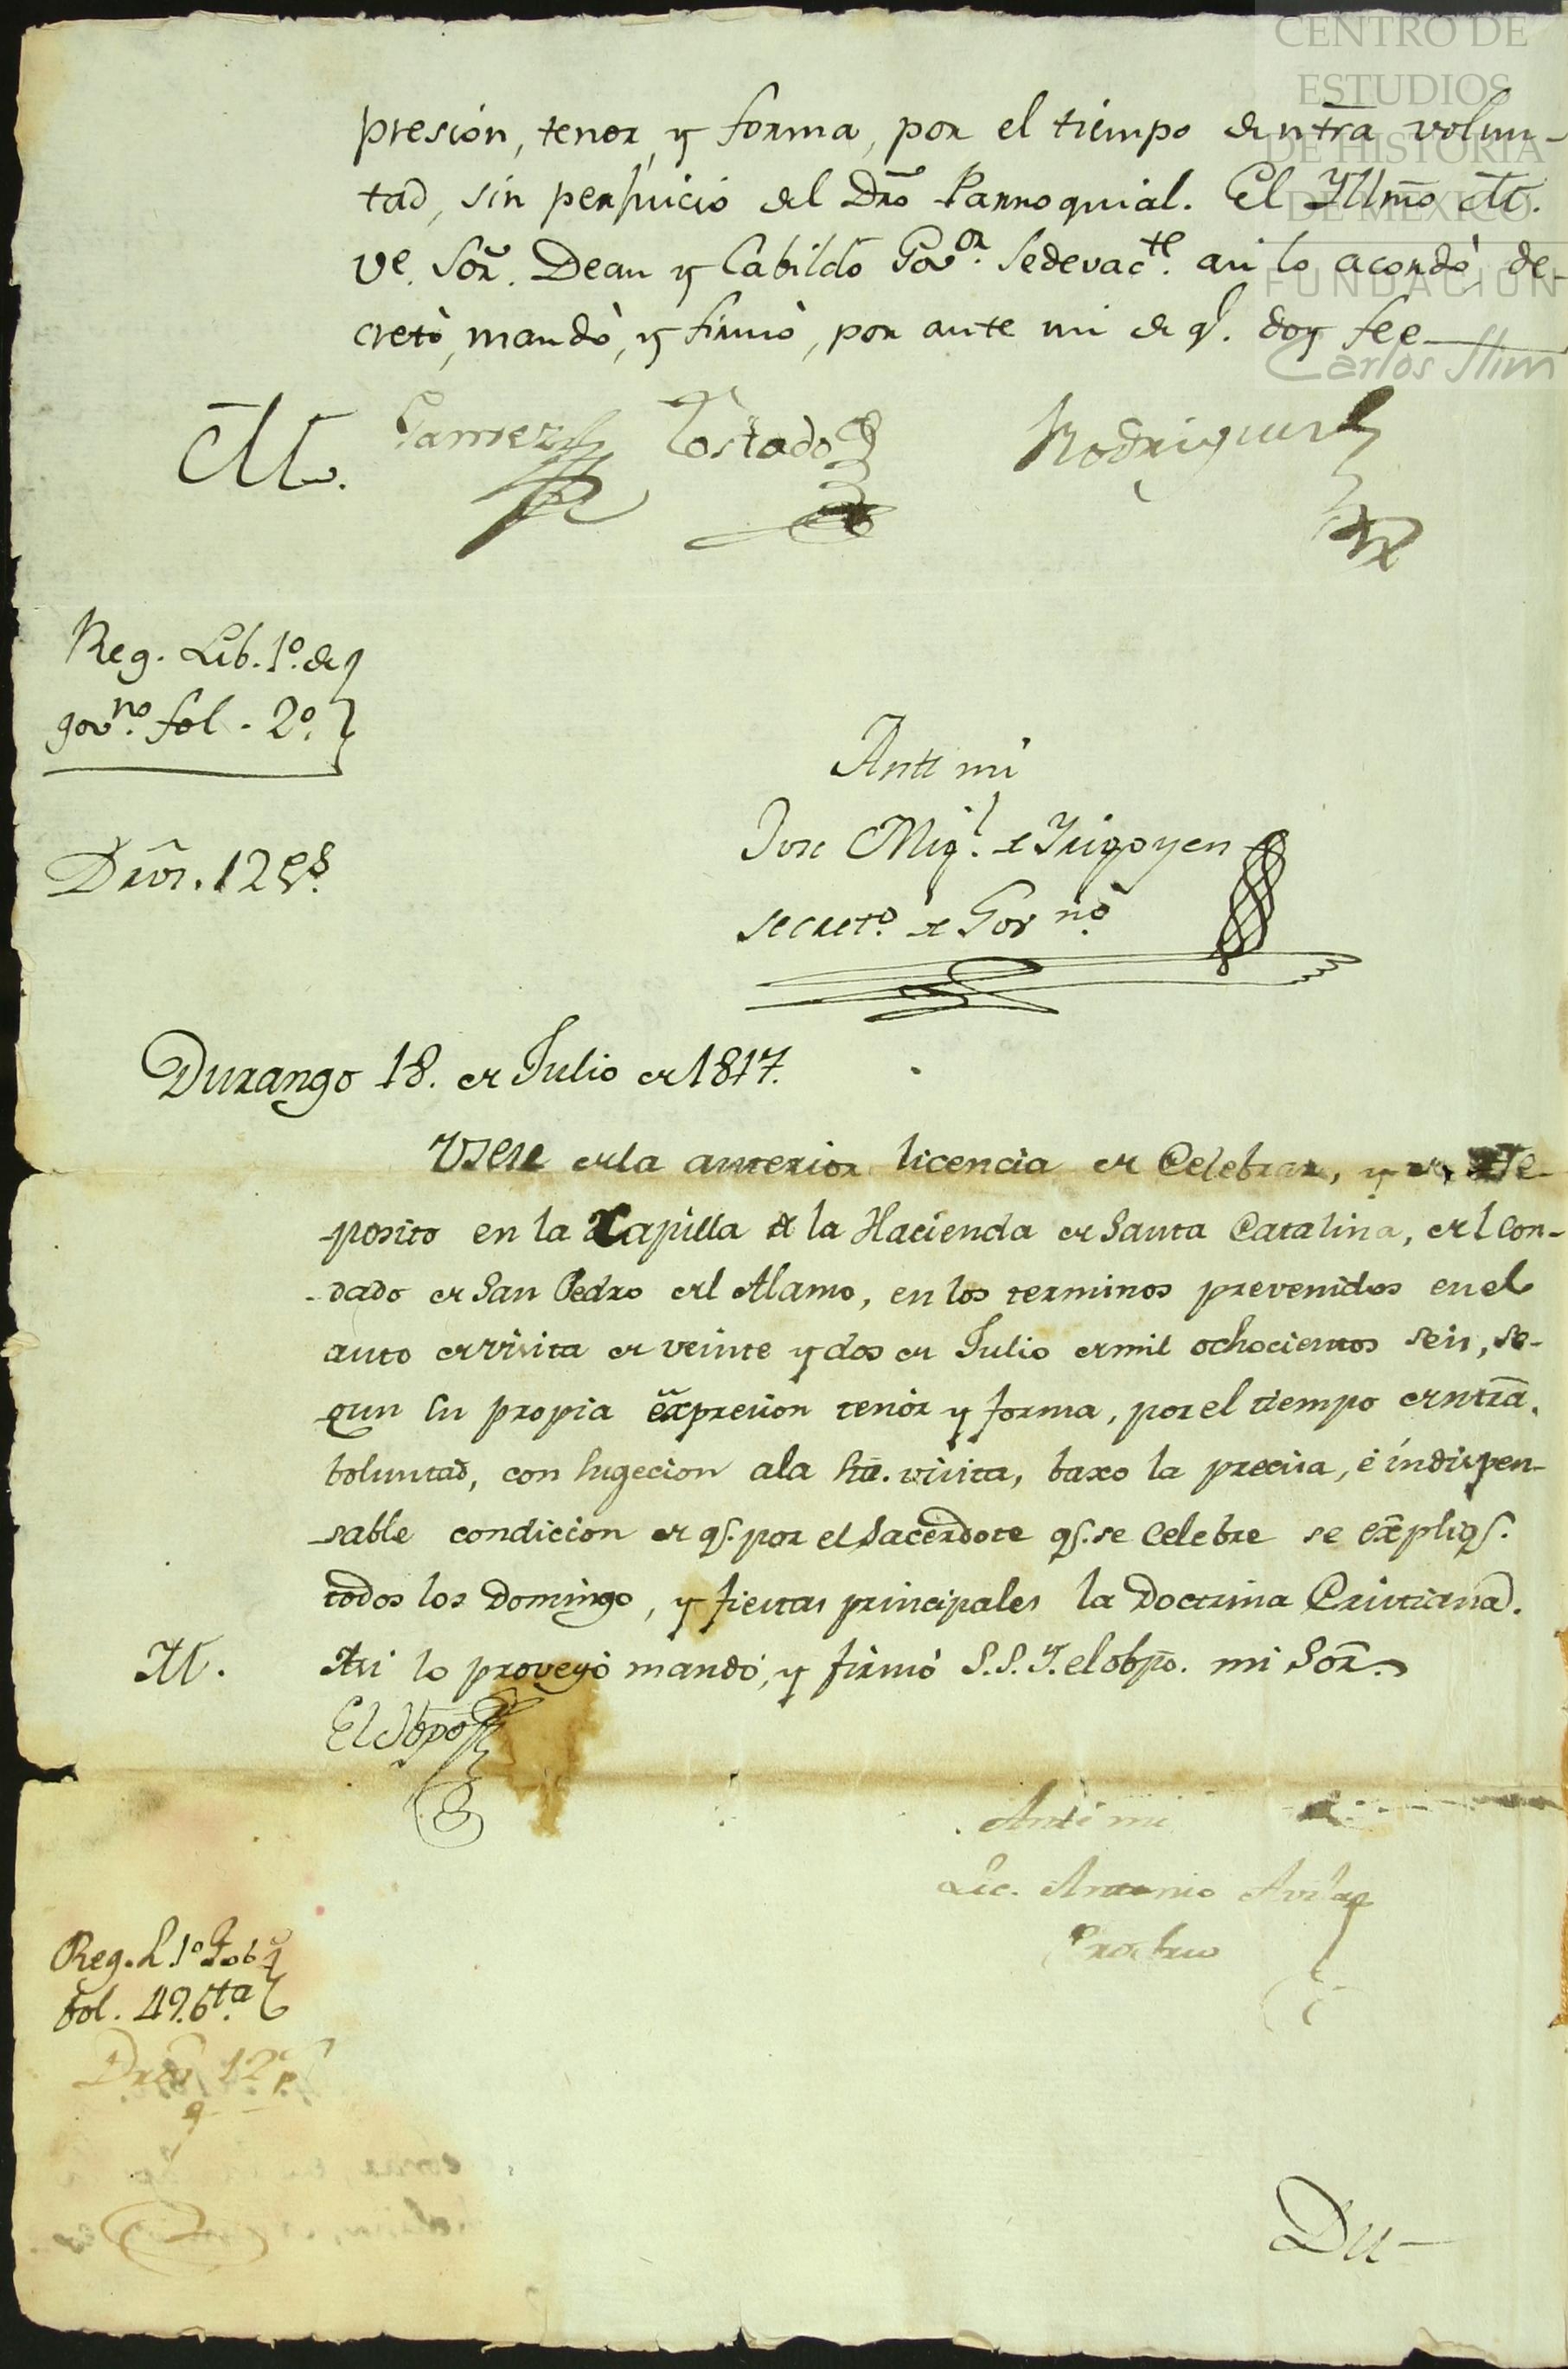 CENTRO DE
ESTUDIOS
DE HISTORIA
DE MEXICO
FUNDACIÓN
Carlos Slim
presion, tenor, y forma, por el tiempo de ntra volun-
tad, sin perjuicio del Dro Parroquial. El Yllmo M.
Ve. Sor. Dean y Cabildo Govor. Sedevacte. asi lo acordó de-
cretó, mandó, y firmó, por ante mi de q. doy fee
M. Gamez Tostado Rodriguez
Reg. Lib. 1º. de
govno. fol. 2º.
Ante mi
Jose Migl. de Yrigoyen
secreto. de Govno.
Dros. 12 ps.
Durango 18. de Julio de 1817.
Usese de la anterior licencia de Celebrar, y de De-
posito en la Capilla de la Hacienda de Santa Catalina, del Con-
dado de San Pedro del Alamo, en los terminos prevenidos en el
auto de visita de veinte y dos de Julio de mil ochocientos seis, se-
gun su propia expresion tenor y forma, por el tiempo de ntra.
boluntad, con sugecion ala Sta. visita, baxo la precisa, é indispen-
sable condicion de q. por el Sacerdote q. se Celebre se expliq.
todos los Domingo, y fiestas principales la Doctrina Cristiana.
M. Asi lo proveyó mandó, y firmó S.S.Y. el obpo. mi Sor.
El Obpo
Ante mi
Lic. Antonio
Reg. L. 1º
fol. 49. 6ta.
Dros 12 p.
Du-